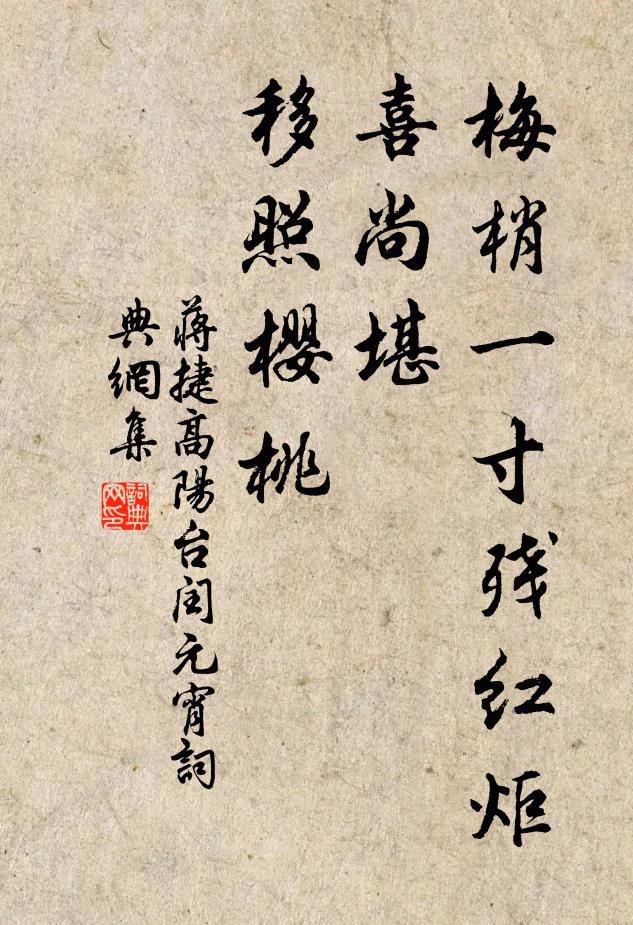 梅梢一寸残红炬
喜尚堪
移照樱桃
蒋捷高陽台闰元宵詞
典網集
詞典网印